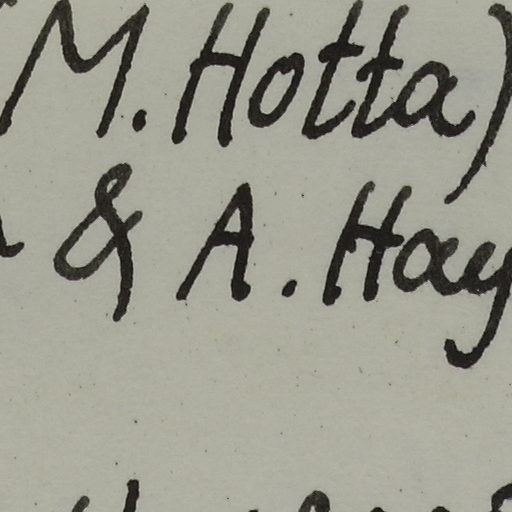 M. Hotta)
& A. Hay